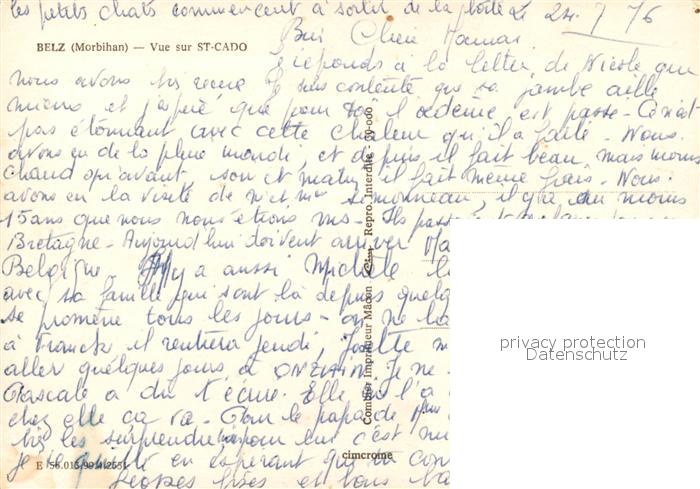 les petits chats commencent à sortir de la
24. 7 76
BELZ (Morbihan) — Vue sur ST-CADO
Chère Maman
réponds à la lettre de Nicole que
nous avons bien reçue Je suis contente que sa jambe aille
mieux et j'espère que pour toi l'œdème est passé - Ce n'est
pas étonnant avec cette chaleur qu'il a faite - Nous
avons eu de la pluie mardi, et depuis il fait beau, mais moins
chaud qu'avant, soir et matin il fait même frais - Nous
avons eu la visite de Mr et Mme Simonneau, il y a au moins
15 ans que nous nous étions vus - Ils
Bretagne - Aujourd'hui doivent arriver
Belgique - Il y a aussi Michèle
avec sa famille qui sont là depuis
se promène tous les jours - on ne
à Franck il rentrera jeudi, Josette
aller quelques jours à ONZAIN Je ne
Pascale a dû t'écrire. Elle
chez elle ça va - Pour le papa de
les surprendre pour lui c'est
je te quitte en espérant que
Grosses bises et tous
Combier Imprimeur Mâcon Cim Repro. Interdite
E 56.013
cimcrome
privacy protection
Datenschutz